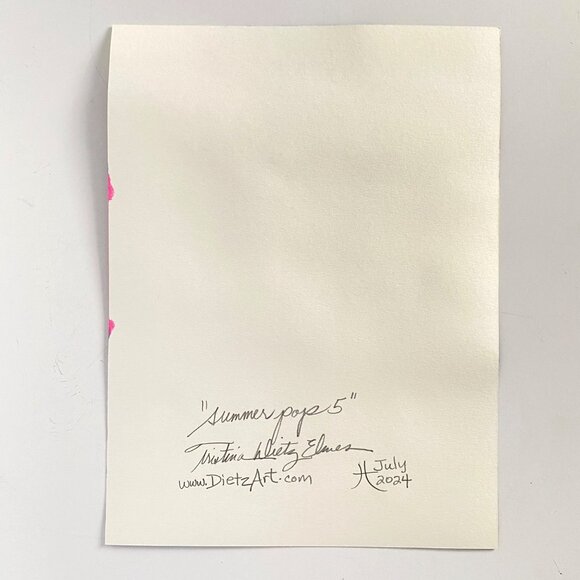 "summer pop 5"
Tristina Dietz Elmes
www.DietzArt.com
July
2024